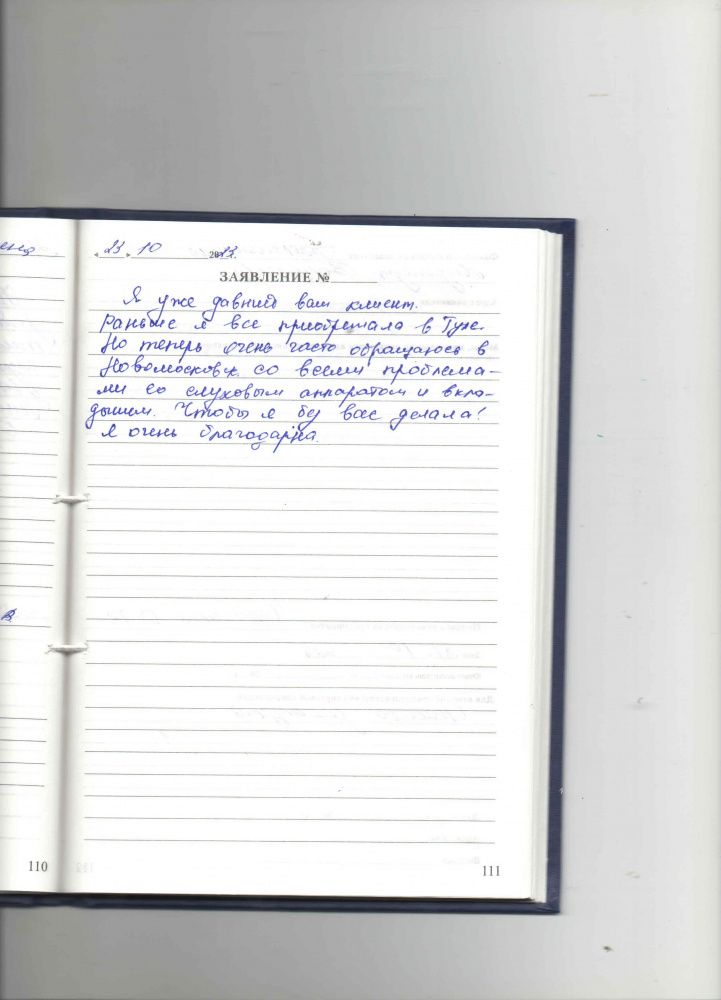 23. 10 2023.
ЗАЯВЛЕНИЕ №
Я уже давний ваш клиент.
Раньше я все приобретала в Туле.
Но теперь очень часто обращаюсь в
Новомосковск со всеми проблема-
ми со слуховым аппаратом и вкла-
дышем. Чтобы я без вас делала!
Я очень благодарна.
110
111